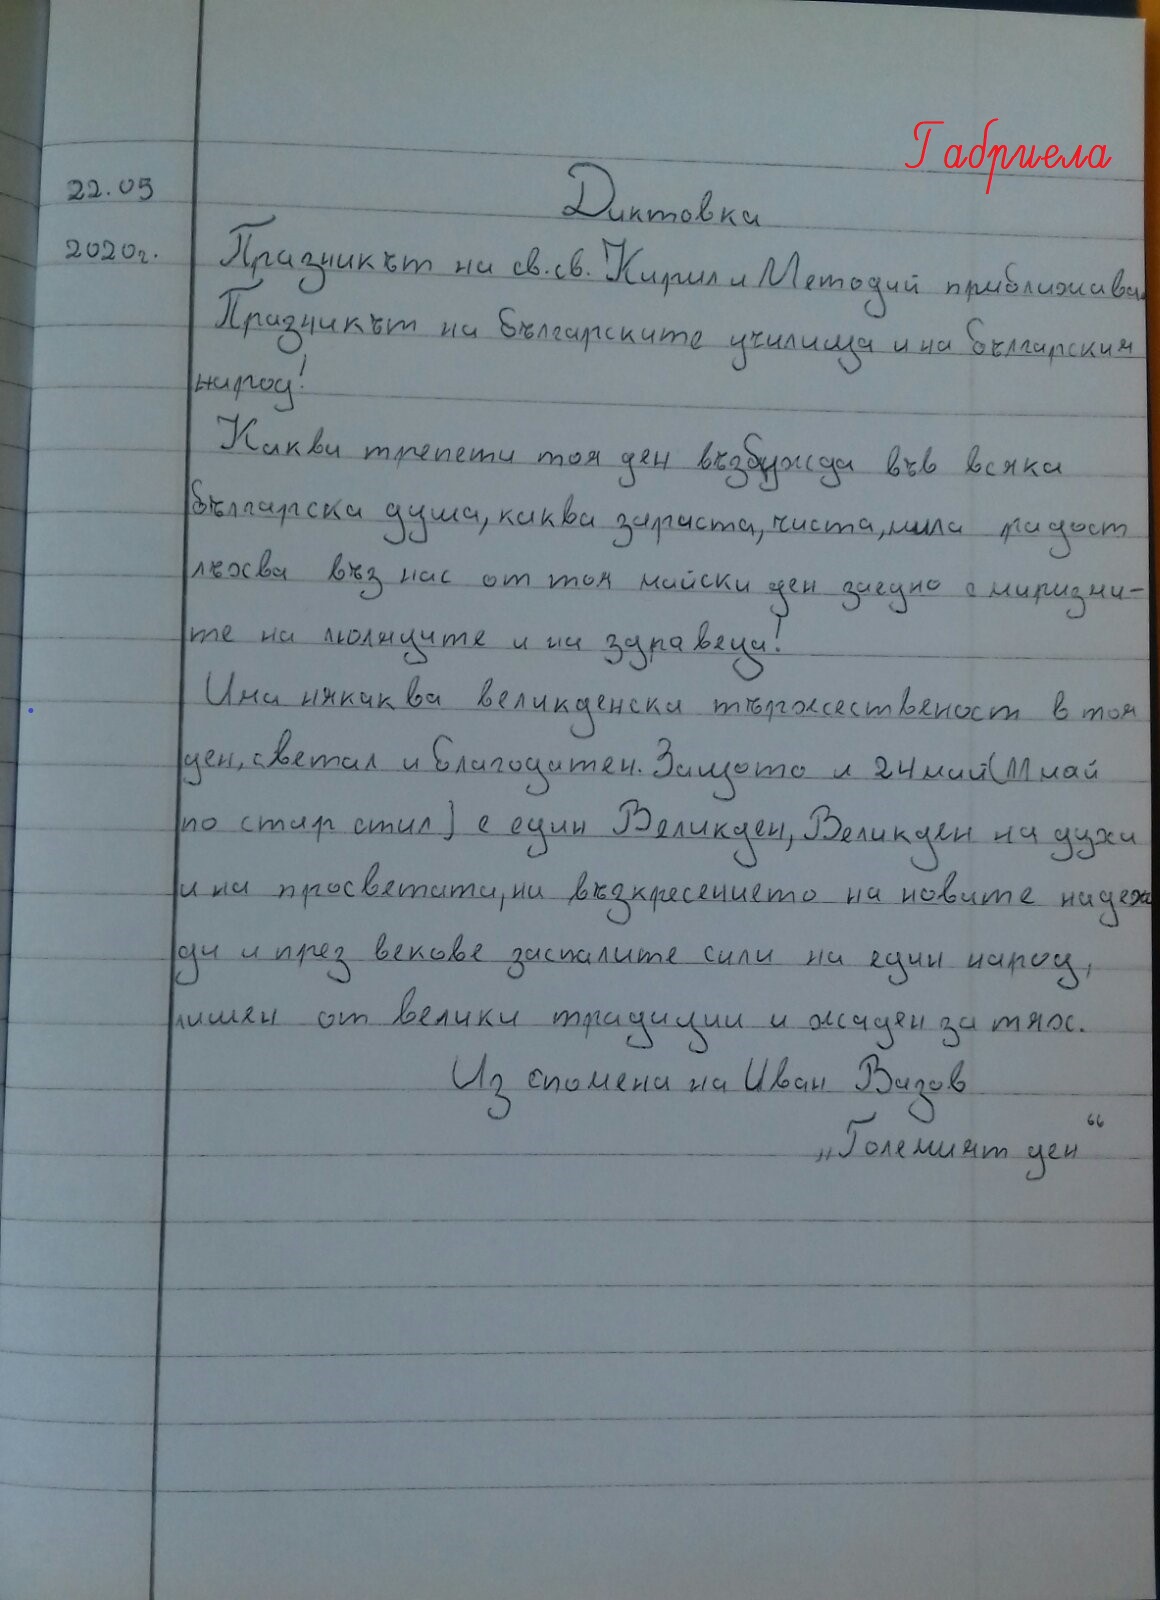 Габриела
22.05
Диктовка
2020г.
Празникът на св.св. Кирил и Методий приближава.
Празникът на българските училища и на българския
народ!
Какви трепети тоя ден възбужда във всяка
българска душа, каква зараста, чиста, мила радост
лъхва въз нас от тоя майски ден заедно с миризми-
те на люляците и на здравеца!
Има някаква великденска тържественост в тоя
ден, светал и благодатен. Защото и 24 май (11 май
по стар стил) е един Великден, Великден на духа
и на просветата, на възкресението на новите надеж
ди и през векове заспалите сили на един народ,
лишен от велики традиции и жаден за тях.
Из спомена на Иван Вазов
„Големият ден“